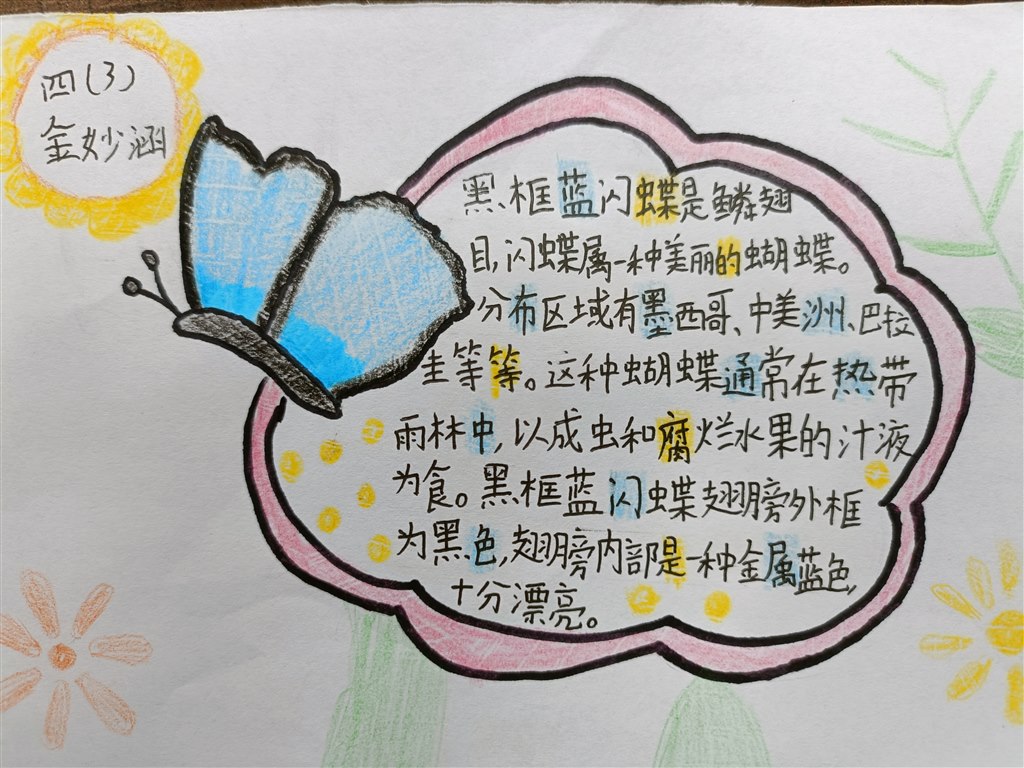 四(3)
金妙涵
黑框蓝闪蝶是鳞翅
目,闪蝶属一种美丽的蝴蝶。
分布区域有墨西哥、中美洲、巴拉
圭等等。这种蝴蝶通常在热带
雨林中,以成虫和腐烂水果的汁液
为食。黑框蓝闪蝶翅膀外框
为黑色,翅膀内部是一种金属蓝色,
十分漂亮。